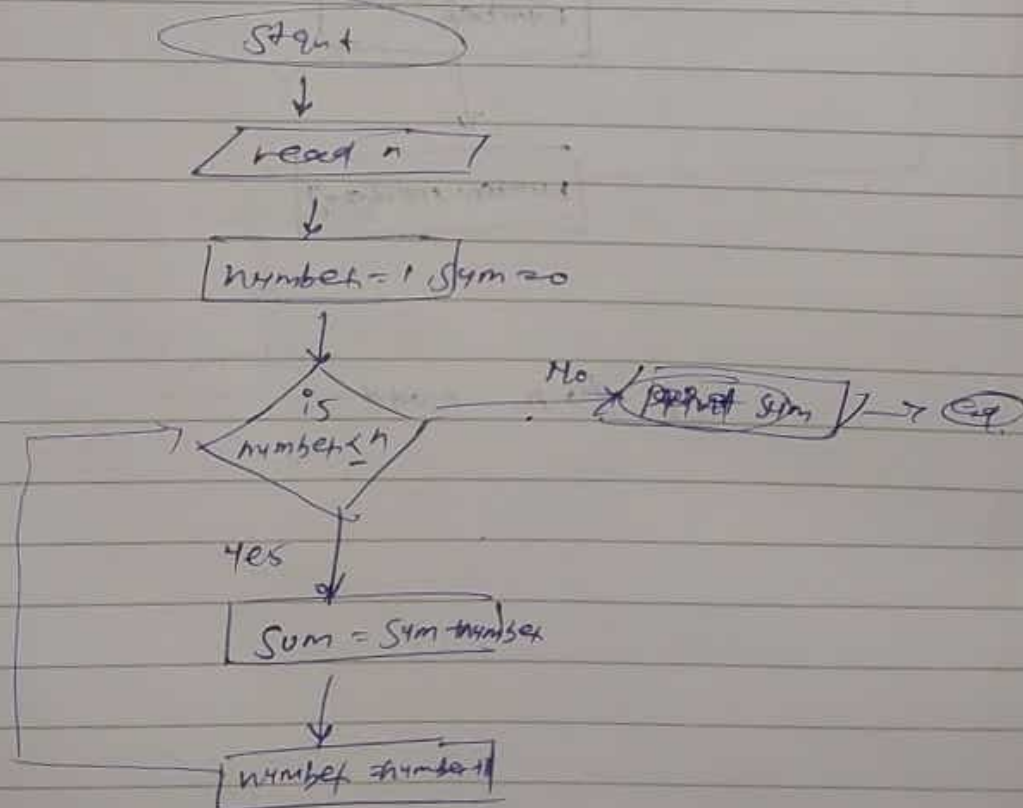 Start
read n
number = 1 Sum = 0
is
number ≤ n
No
print sum
Yes
Sum = Sum + number
number = number + 1